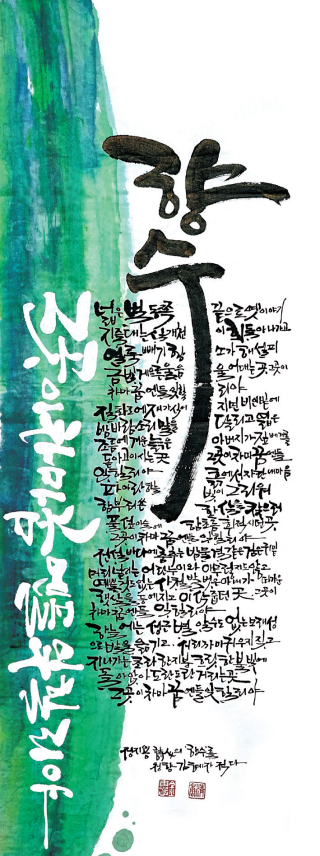 향수
그곳이 차마 꿈엔들 잊힐리야
넓은 벌 동쪽 끝으로 옛이야기
지줄대는 실개천이 휘돌아 나가고
얼룩빼기 황소가 해설피
금빛 게으른 울음을 우는 곳 그곳이
차마 꿈엔들 잊힐리야
질화로에 재가 식어지면 비인 밭에
밤바람 소리 말을 달리고 엷은
졸음에 겨운 늙은 아버지가 짚베개를
돋아 고이시는 곳 그곳이 차마 꿈엔들
잊힐리야 흙에서 자란 내 마음
파아란 하늘 빛이 그리워
함부로 쏜 화살을 찾으려
풀섶 이슬에 함추름 휘적시던 곳
그곳이 차마 꿈엔들 잊힐리야
전설 바다에 춤추는 밤물결 같은 검은 귀밑
머리 날리는 어린 누이와 아무렇지도 않고
예쁠 것도 없는 사철 발벗은 아내가 따가운
햇살을 등에 지고 이삭 줍던 곳 그곳이
차마 꿈엔들 잊힐리야
하늘에는 성근 별 알 수도 없는 모래성
으로 발을 옮기고 서리까마귀 우지짖고
지나가는 초라한 지붕 흐릿한 불빛에
돌아앉아 도란도란거리는 곳
그곳이 차마 꿈엔들 잊힐리야
정지용 의 '향수'를
적다